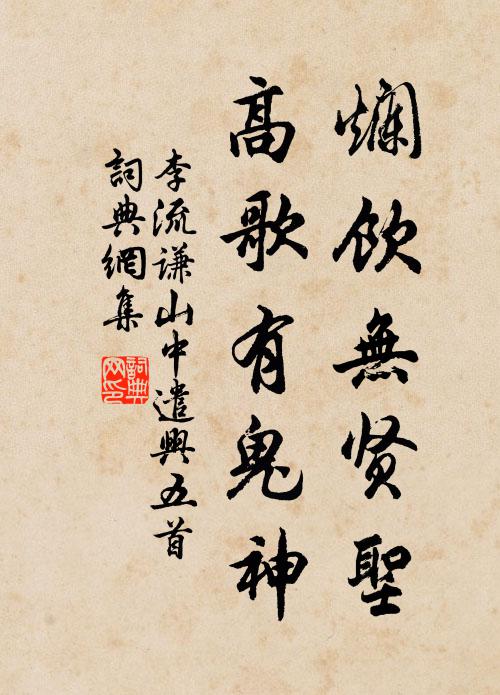 爛飲無贤聖
高歌有鬼神
李流谦山中遣興五首
詞典網集
詞典网印